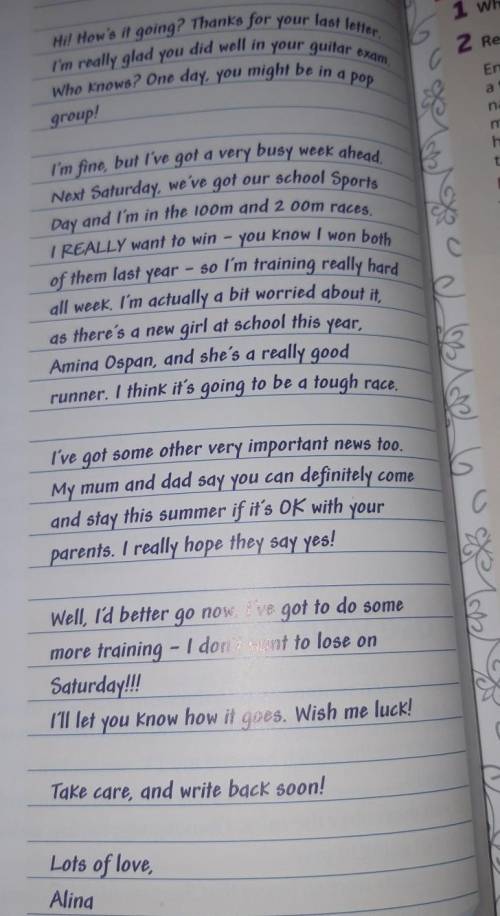 Hi! How's it going? Thanks for your last letter.
I'm really glad you did well in your guitar exam.
Who knows? One day, you might be in a pop
group!
I'm fine, but I've got a very busy week ahead.
Next Saturday, we've got our school Sports
Day and I'm in the 100m and 2 00m races.
I REALLY want to win – you know I won both
of them last year – so I'm training really hard
all week. I'm actually a bit worried about it,
as there's a new girl at school this year,
Amina Ospan, and she's a really good
runner. I think it's going to be a tough race.
I've got some other very important news too.
My mum and dad say you can definitely come
and stay this summer if it's OK with your
parents. I really hope they say yes!
Well, I'd better go now. I've got to do some
more training – I don't want to lose on
Saturday!!!
I'll let you know how it goes. Wish me luck!
Take care, and write back soon!
Lots of love,
Alina
1 Wh
2 Re
En
a